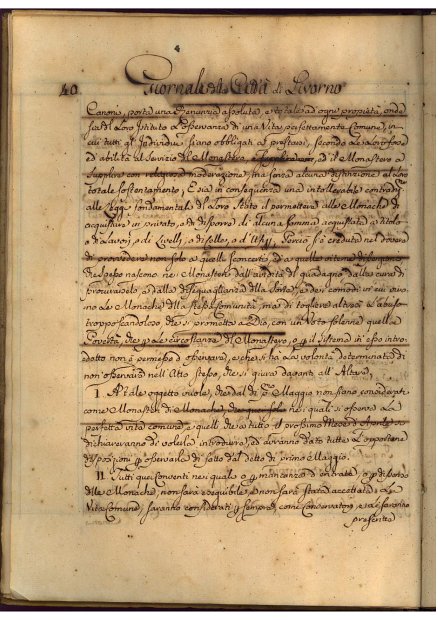 40 Giornale della Città di Livorno
Canoni, porta una Renunzia assoluta, e totale ad ogni proprietà, onde
sia di Loro Istituto L'osservanza di una Vita perfettamente Comune, in
cui tutti gl' Individui siano obbligati a prestarsi, secondo Le Loro forze
ed abilità al Servizio del Monastero, ed il Monastero a
Supplire con religiosa moderazione, ma senza alcuna distinzione al Loro
totale Sostentamento; E sia in conseguenza una intollerabile contradiz.
alle Leggi fondamentali di Loro Stato il permettere alle Monache di
acquistare in privato, e di disporre di alcuna somma acquistata a titolo
o di Lavori, o di Livelli, o di Celle, o d' Ufizj, Perciò si è creduta nel dovere
di provvedere non solo a quelli Sconcerti, ed a quelle
che spesso nascono nei Monasteri dall' avidità di guadagno dalla cura di
procurarselo e dalla disuguaglianza della Sorte, e dei comodi in cui vivo-
no Le Monache della stessa Comunità, ma di togliere altresì L' abuso
troppo scandoloso, che si prometta a Dio, con un Voto solenne quella
Povertà, che per Le circostanze del Monastero, o per il sistema in esso intro-
dotto non è permesso d' osservare, e che si ha La volontà determinata di
non osservare nell' Atto stesso, che si giura davanti all' Altare,
I. A tale oggetto vuole, che dal di primo Maggio non siano considerati
come Monasteri di Monache, che quei solo nei quali si osserva La
perfetta vita comune, e quelli che a tutto il prossimo Mese d' Aprile si
dichiareranno di volerla introdurre, ed avranno dato tutte Le opportune
disposizioni per osservarla di fatto dal detto di primo Maggio.
II. Tutti quei Conventi nei quali o per mancanza d' entrate, o per
delle Monache, non sarà eseguibile, o non sarà stata accettata La
Vita Comune, saranno considerati per sempre, come Conservatorj, e La
presente